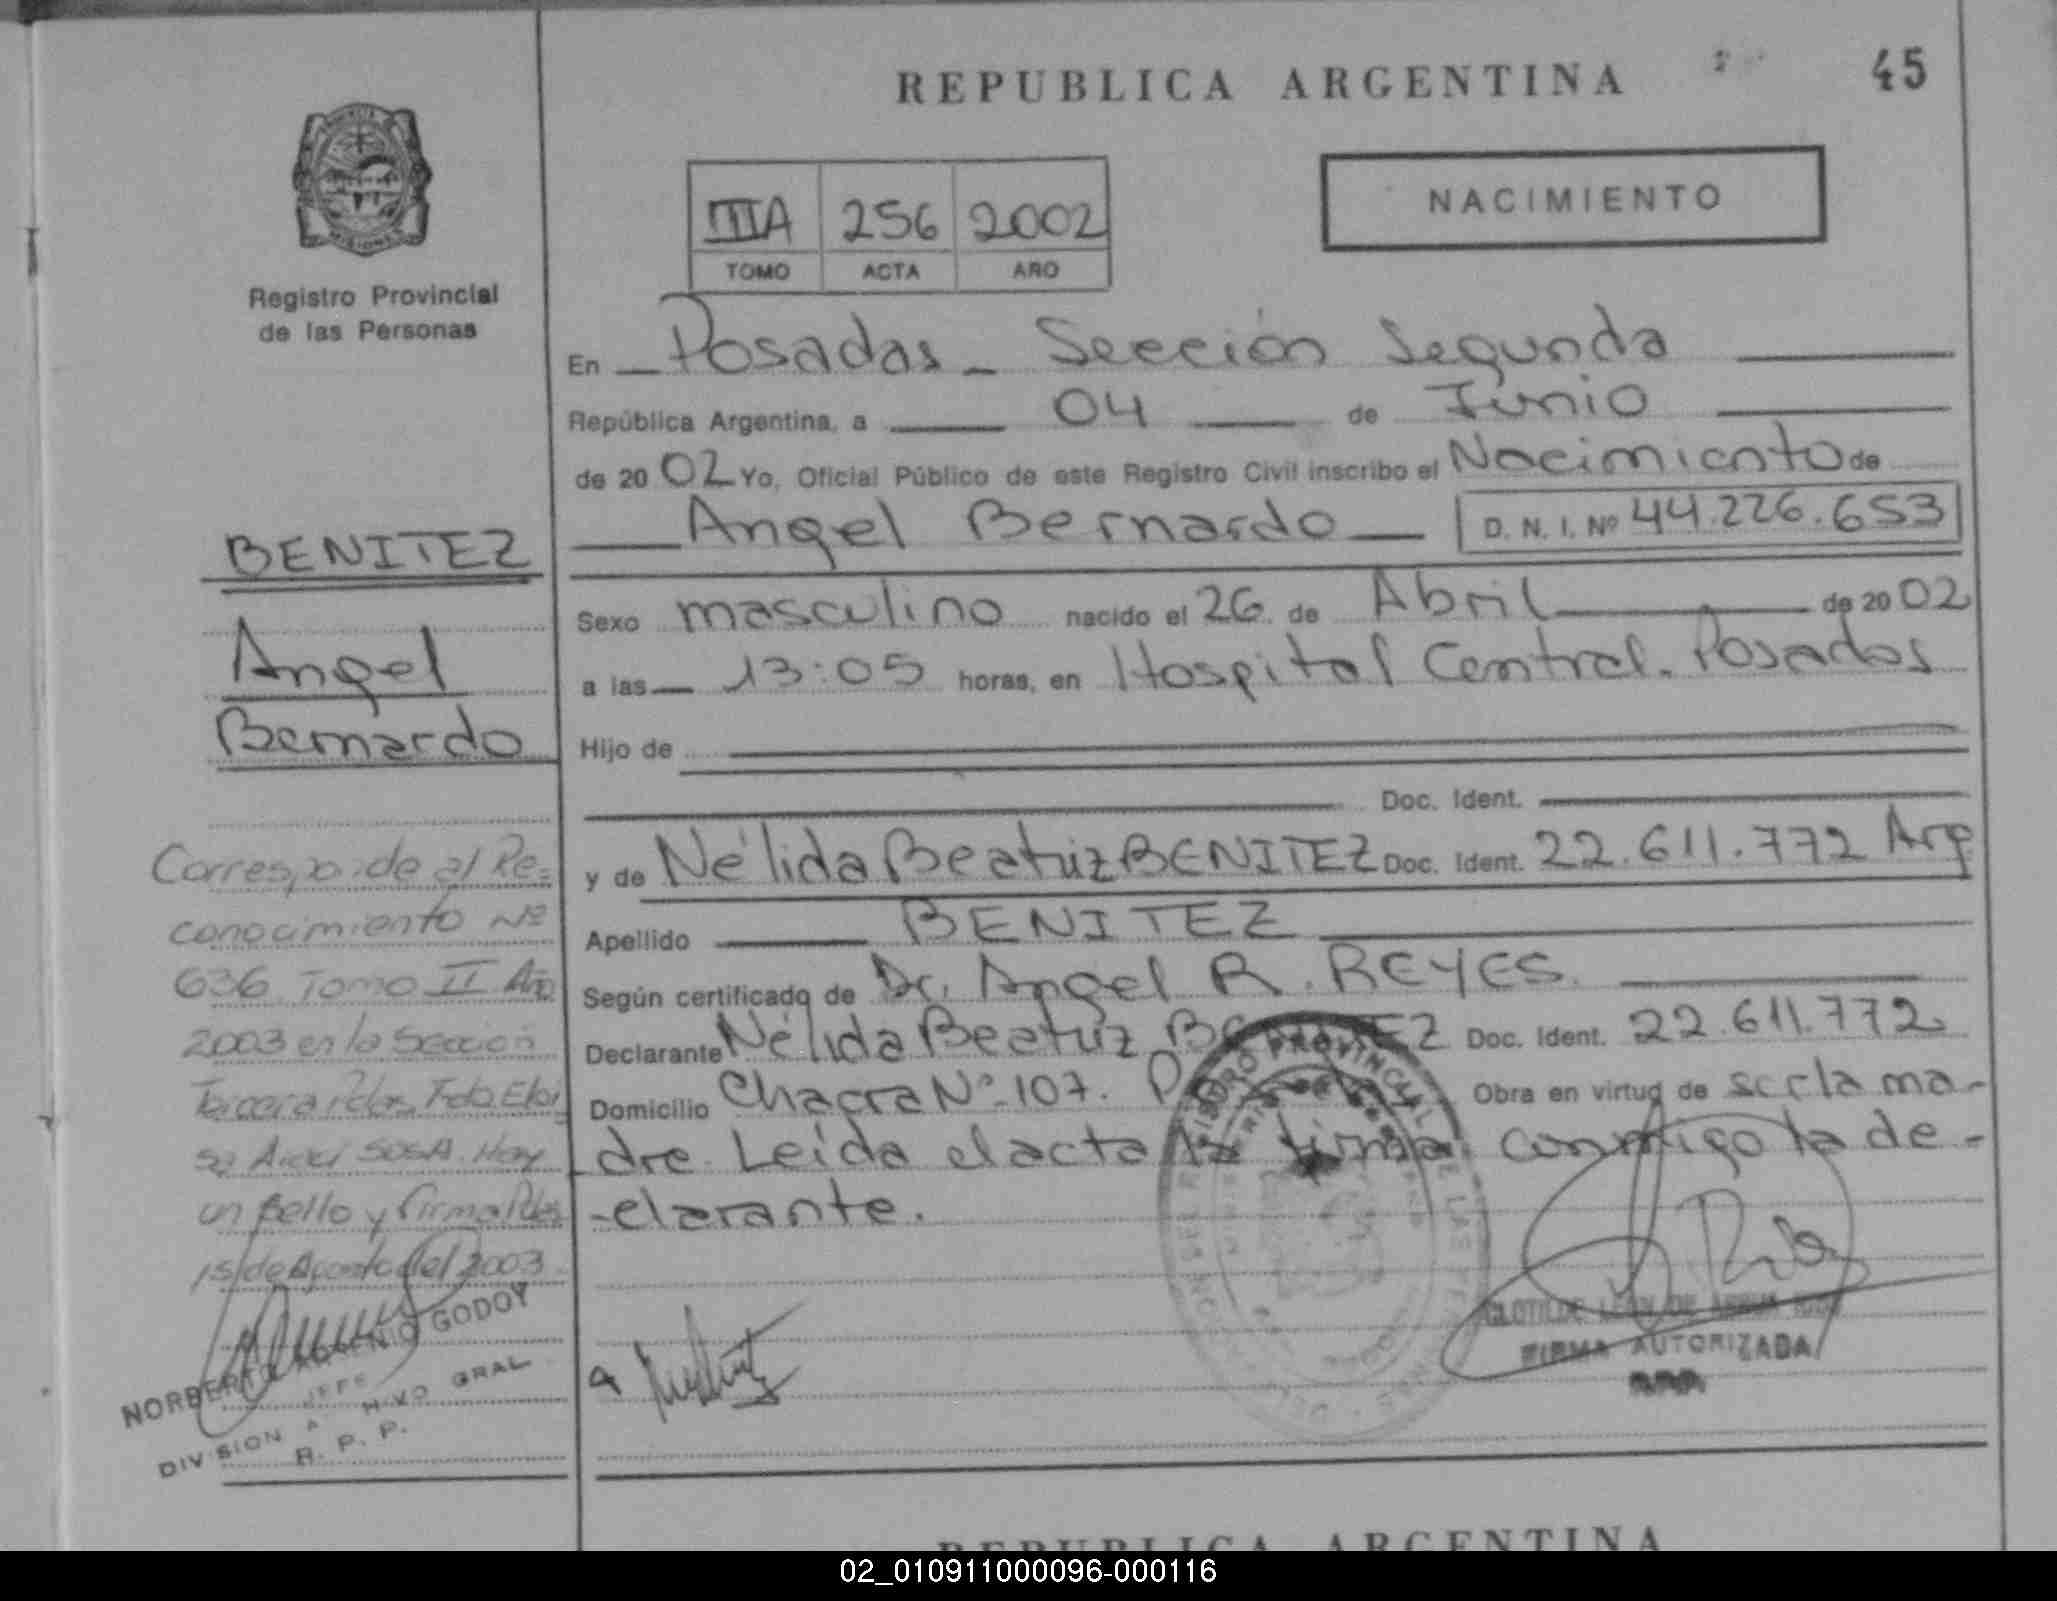 REPUBLICA ARGENTINA
45
Registro Provincial
de las Personas
IIIA 256 2002
TOMO ACTA AÑO
NACIMIENTO
BENITEZ
Angel
Bernardo
Corresponde al Re-
conocimiento Nº
636 Tomo II Año
2003 en la Sección
Tercera Pdas. Fdo
SOSA. Hay
un sello y firma Pdas
15 de Agosto del 2003
NORBERTO GODOY
JEFE
DIVISION GRAL
R. P. P.
En Posadas - Sección Segunda
República Argentina, a 04 de Junio
de 20 02 Yo, Oficial Público de este Registro Civil inscribo el Nacimiento de
Angel Bernardo D. N. I. Nº 44.226.653
Sexo masculino nacido el 26 de Abril de 20 02
a las 13:05 horas, en Hospital Central. Posadas
Hijo de
Doc. Ident.
y de Nélida Beatriz BENITEZ Doc. Ident. 22.611.772 Arg
Apellido BENITEZ
Según certificado de Dr. Angel R. REYES.
Declarante Nélida Beatriz BENITEZ Doc. Ident. 22.611.772
Domicilio Chacra Nº 107. Obra en virtud de ser la ma-
dre. Leída el acta la firma conmigo la de-
-clarante.
CLOTILDE
FIRMA AUTORIZADA
REPUBLICA ARGENTINA
02_010911000096-000116